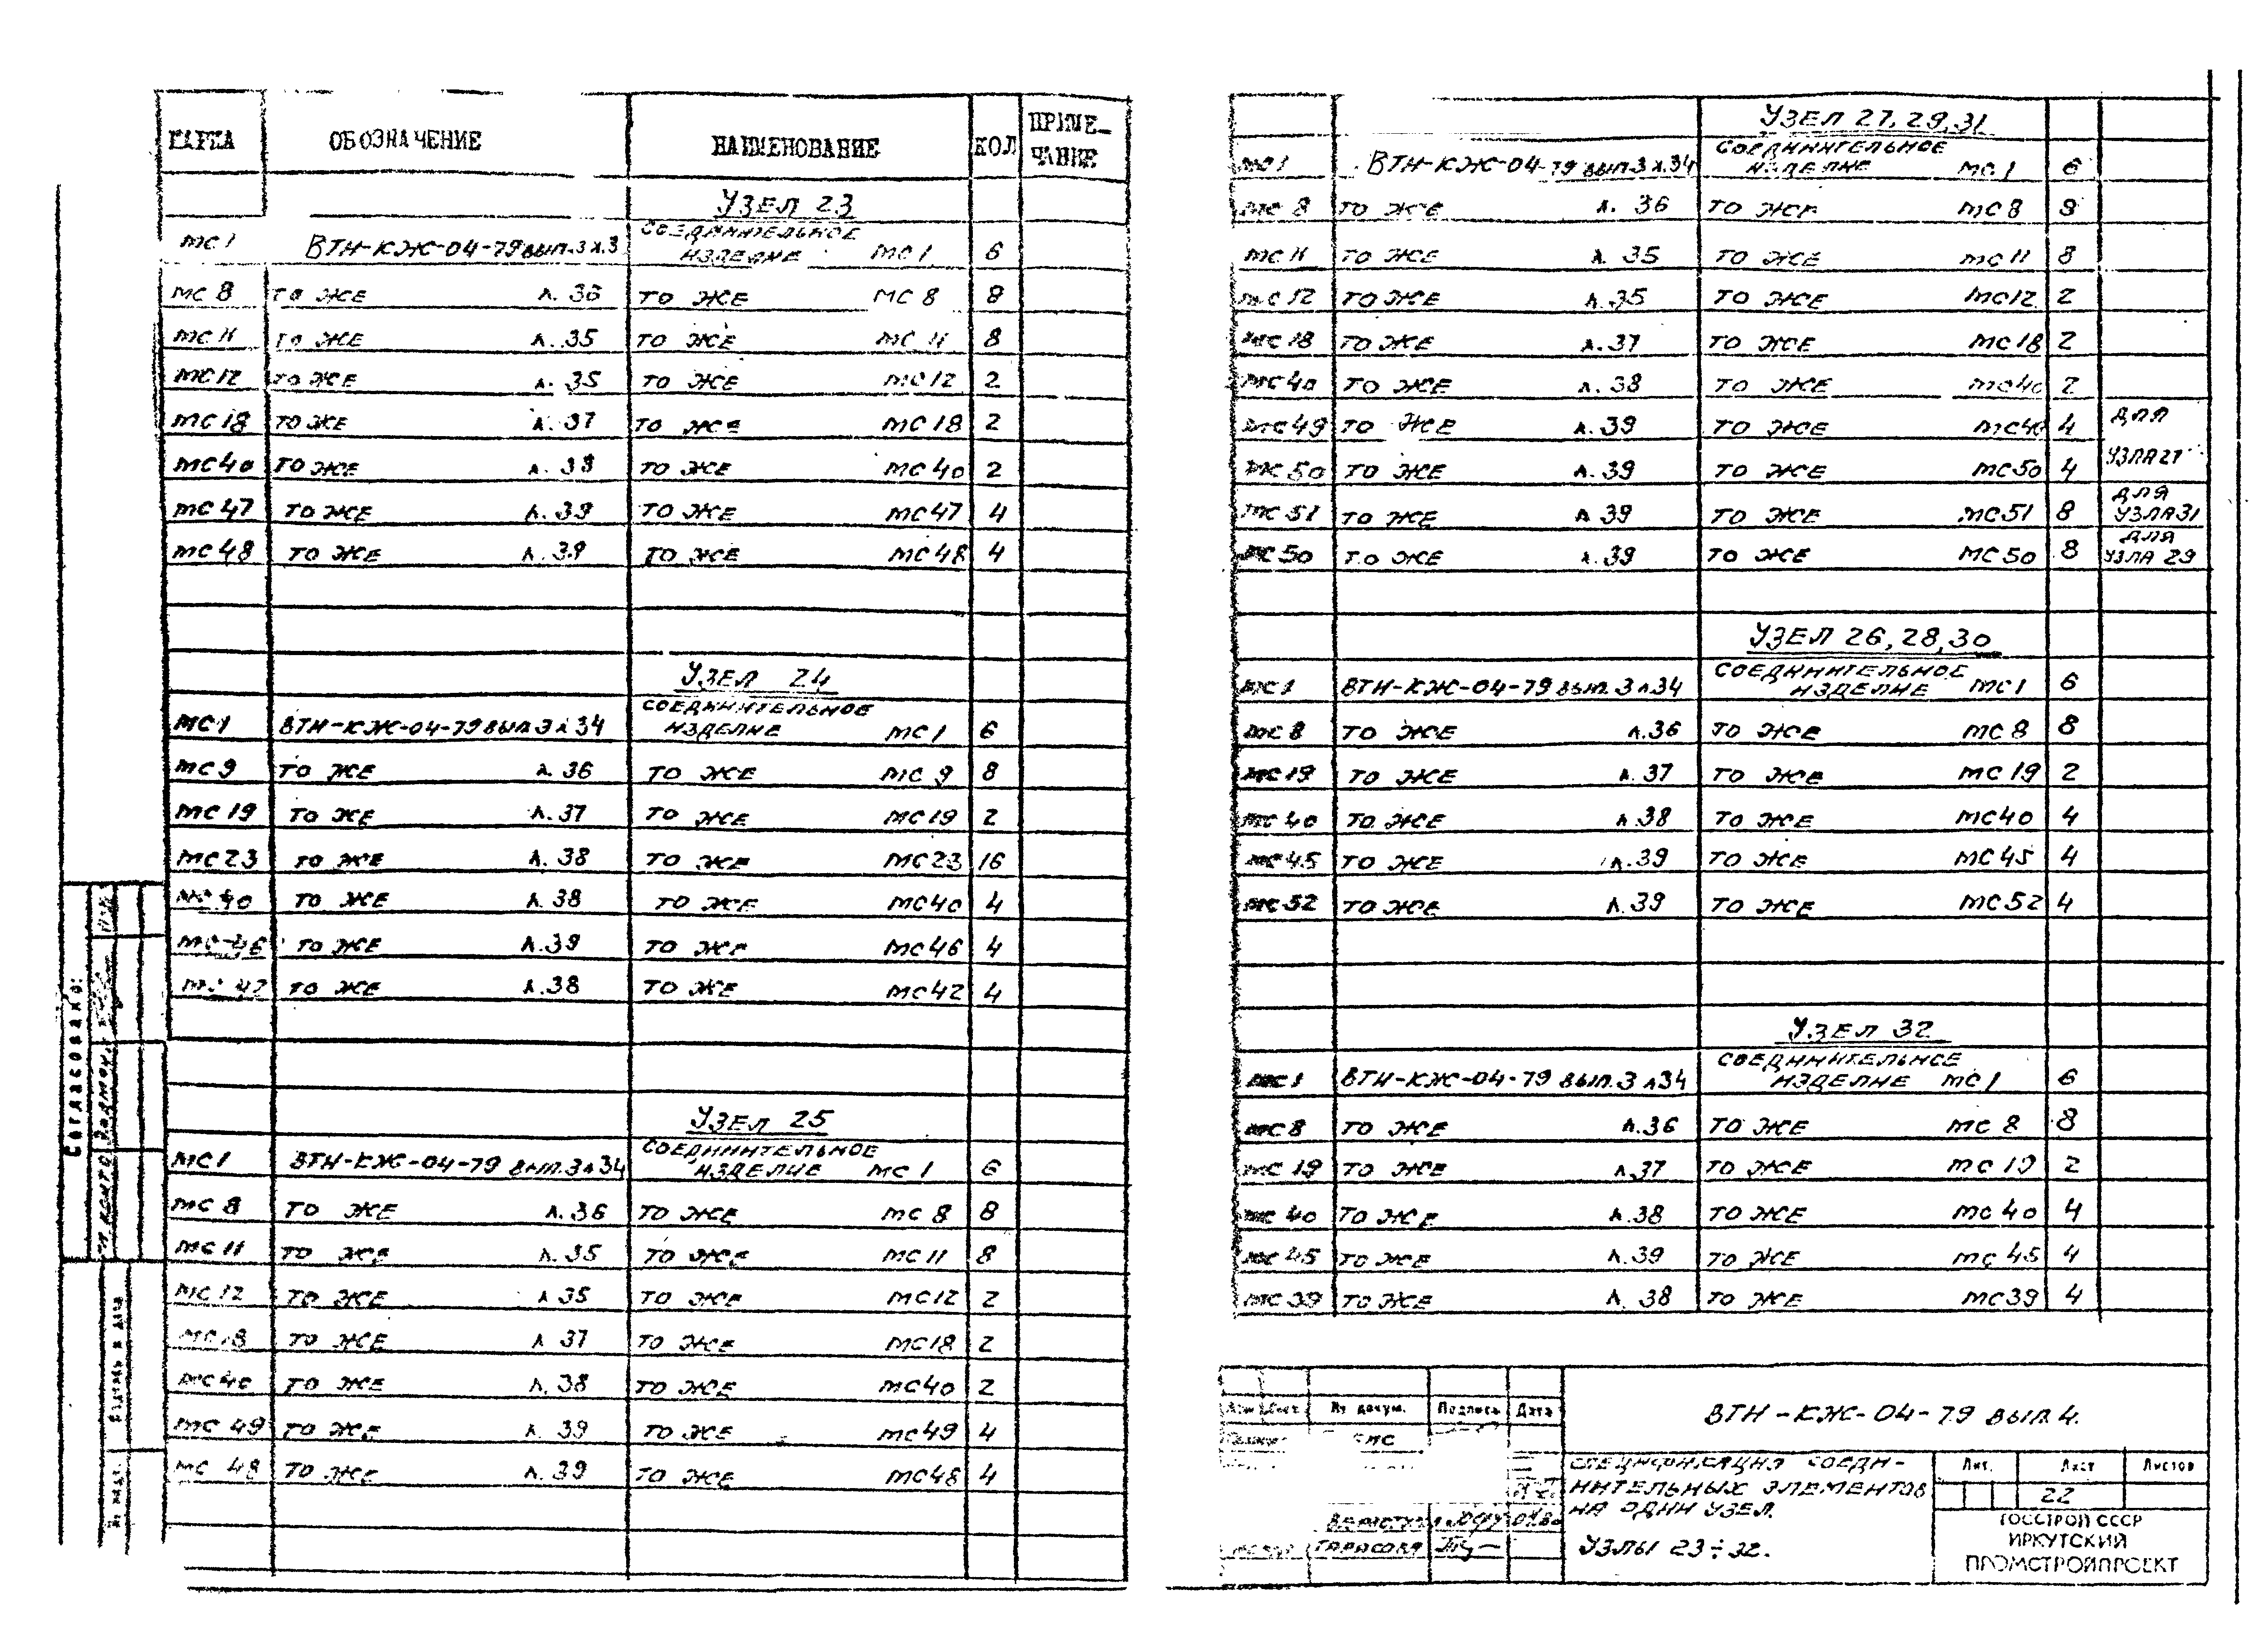 МАРКА ОБОЗНАЧЕНИЕ НАИМЕНОВАНИЕ КОЛ ПРИМЕ-
ЧАНИЕ
УЗЕЛ 23
МС1 ВТН-КЖ-04-79 ВЫП.3 Л.3 СОЕДИНИТЕЛЬНОЕ
ИЗДЕЛИЕ МС1 6
МС8 ТО ЖЕ Л. 36 ТО ЖЕ МС8 8
МС11 ТО ЖЕ Л. 35 ТО ЖЕ МС11 8
МС12 ТО ЖЕ Л. 35 ТО ЖЕ МС12 2
МС18 ТО ЖЕ Л. 37 ТО ЖЕ МС18 2
МС40 ТО ЖЕ Л. 38 ТО ЖЕ МС40 2
МС47 ТО ЖЕ Л. 39 ТО ЖЕ МС47 4
МС48 ТО ЖЕ Л. 39 ТО ЖЕ МС48 4
УЗЕЛ 24
МС1 ВТН-КЖ-04-79 ВЫП.3 Л34 СОЕДИНИТЕЛЬНОЕ
ИЗДЕЛИЕ МС1 6
МС9 ТО ЖЕ Л. 36 ТО ЖЕ МС9 8
МС19 ТО ЖЕ Л. 37 ТО ЖЕ МС19 2
МС23 ТО ЖЕ Л. 38 ТО ЖЕ МС23 16
МС40 ТО ЖЕ Л. 38 ТО ЖЕ МС40 4
МС-46 ТО ЖЕ Л.39 ТО ЖЕ МС46 4
МС42 ТО ЖЕ Л.38 ТО ЖЕ МС42 4
УЗЕЛ 25
МС1 ВТН-КЖ-04-79 ВЫП.3 Л34 СОЕДИНИТЕЛЬНОЕ
ИЗДЕЛИЕ МС1 6
МС8 ТО ЖЕ Л.36 ТО ЖЕ МС8 8
МС11 ТО ЖЕ Л.35 ТО ЖЕ МС11 8
МС12 ТО ЖЕ Л 35 ТО ЖЕ МС12 2
МС18 ТО ЖЕ Л 37 ТО ЖЕ МС18 2
МС40 ТО ЖЕ Л. 38 ТО ЖЕ МС40 2
МС49 ТО ЖЕ Л. 39 ТО ЖЕ МС49 4
МС 48 ТО ЖЕ Л. 39 ТО ЖЕ МС48 4
Согласовано:
Подпись и дата
УЗЕЛ 27, 29, 31
МС1 ВТН-КЖ-04-79 ВЫП.3 Л.34 СОЕДИНИТЕЛЬНОЕ
ИЗДЕЛИЕ МС1 6
МС8 ТО ЖЕ Л. 36 ТО ЖЕ МС8 8
МС11 ТО ЖЕ Л. 35 ТО ЖЕ МС11 8
МС12 ТО ЖЕ Л.35 ТО ЖЕ МС12 2
МС18 ТО ЖЕ Л.37 ТО ЖЕ МС18 2
МС40 ТО ЖЕ Л. 38 ТО ЖЕ МС40 2
МС49 ТО ЖЕ Л.39 ТО ЖЕ 4 ДЛЯ
МС50 ТО ЖЕ Л.39 ТО ЖЕ МС50 4 УЗЛА 27
МС51 ТО ЖЕ Л 39 ТО ЖЕ МС51 8 ДЛЯ
УЗЛА 31
МС50 ТО ЖЕ Л.39 ТО ЖЕ МС50 8 ДЛЯ
УЗЛА 29
УЗЕЛ 26, 28, 30
МС1 ВТН-КЖ-04-79 ВЫП. 3 Л34 СОЕДИНИТЕЛЬНОЕ
ИЗДЕЛИЕ МС1 6
МС8 ТО ЖЕ Л.36 ТО ЖЕ МС8 8
МС19 ТО ЖЕ Л. 37 ТО ЖЕ МС19 2
МС40 ТО ЖЕ Л.38 ТО ЖЕ МС40 4
МС45 ТО ЖЕ Л.39 ТО ЖЕ МС45 4
МС52 ТО ЖЕ Л.39 ТО ЖЕ МС52 4
УЗЕЛ 32
МС1 ВТН-КЖ-04-79 ВЫП.3 Л34 СОЕДИНИТЕЛЬНОЕ
ИЗДЕЛИЕ МС1 6
МС8 ТО ЖЕ Л.36 ТО ЖЕ МС8 8
МС19 ТО ЖЕ Л.37 ТО ЖЕ МС19 2
МС40 ТО ЖЕ Л.38 ТО ЖЕ МС40 4
МС45 ТО ЖЕ Л.39 ТО ЖЕ МС45 4
МС39 ТО ЖЕ Л. 38 ТО ЖЕ МС39 4
№ докум. Подпись Дата
ВТН-КЖ-04-79 ВЫП 4.
СПЕЦИФИКАЦИЯ СОЕДИ-
НИТЕЛЬНЫХ ЭЛЕМЕНТОВ
НА ОДИН УЗЕЛ.
УЗЛЫ 23÷32.
ТАРАСОВА
Лит. Лист Листов
22
ГОССТРОЙ СССР
ИРКУТСКИЙ
ПРОМСТРОЙПРОЕКТ